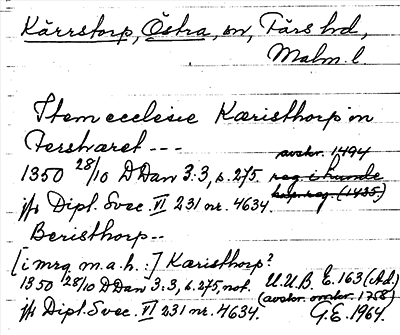 Kärrstorp, Östra, sn, Färs hd,
Malm. l.
Item ecclesie Kæristhorp in
Fershæret ---
avskr. 1494
1350 28/10 DDan 3:3, s. 275
jfr Dipl. Svec. VI 231 nr. 4634.
Beristhorp --
[i mrg m. a. h.:] Kæristhorp?
1350 28/10 DDan 3:3, s. 275, not. U.U.B. E. 163 (Ad.)
(avskr. omkr. 1758)
jfr Dipl. Svec. VI 231 nr. 4634. G.E. 1964.